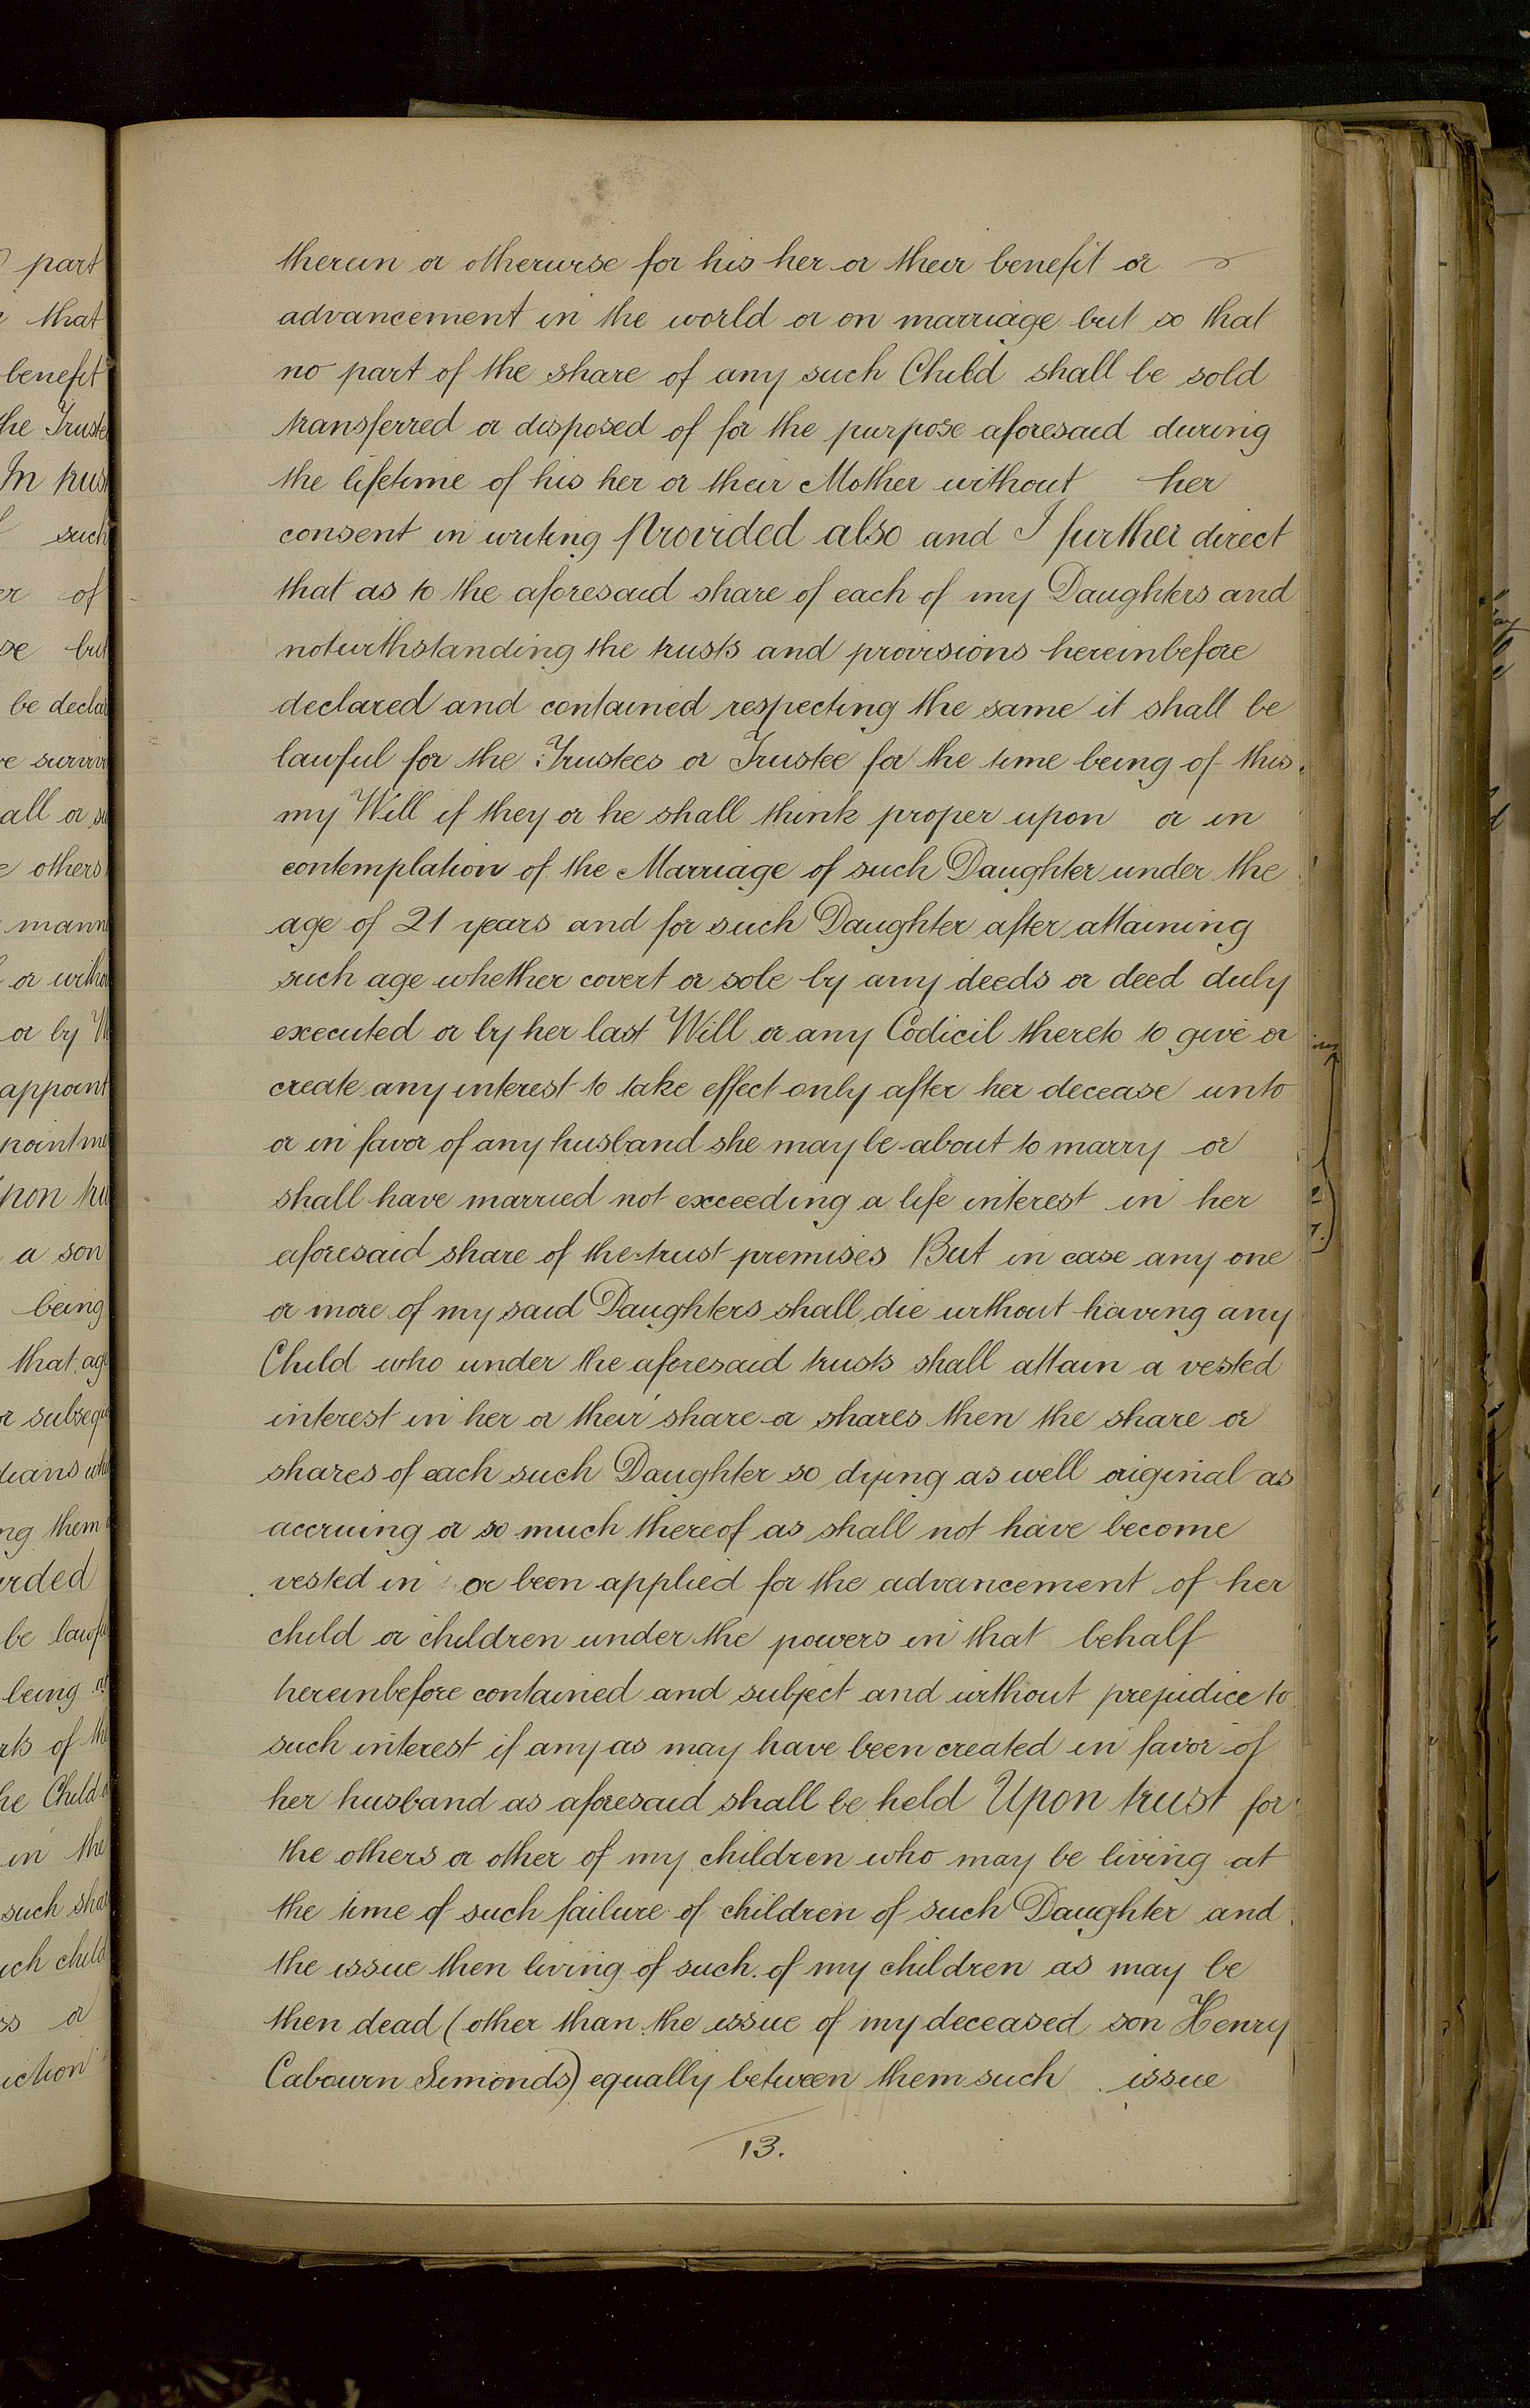 therein or otherwise for his her or their benefit or
advancement in the world or on marriage but so that
no part of the share of any such Child shall be sold
transferred or disposed of for the purpose aforesaid during
the lifetime of his her or their Mother without her
consent in writing Provided also and I further direct
that as to the aforesaid share of each of my Daughters and
notwithstanding the trusts and provisions hereinbefore
declared and contained respecting the same it shall be
lawful for the Trustees or Trustee for the time being of this
my Will if they or he shall think proper upon or in
contemplation of the Marriage of such Daughter under the
age of 21 years and for such Daughter after attaining
such age whether covert or sole by any deeds or deed duly
executed or by her last Will or any Codicil thereto to give or
create any interest to take effect only after her decease unto
or in favor of any husband she may be about to marry or
shall have married not exceeding a life interest in her
aforesaid share of the trust premises But in case any one
or more of my said Daughters shall die without having any
Child who under the aforesaid trusts shall attain a vested
interest in her or their share or shares then the share or
shares of each such Daughter so dying as well original as
accruing or so much thereof as shall not have become
vested in or been applied for the advancement of her
child or children under the powers in that behalf
hereinbefore contained and subject and without prejudice to
such interest if any as may have been created in favor of
her husband as aforesaid shall be held Upon trust for
the others or other of my children who may be living at
the time of such failure of children of such Daughter and
the issue then living of such of my children as may be
then dead (other than the issue of my deceased son Henry
Cabourn Simonds) equally between them such issue
13.
part
that
benefit
the
In
such
of
be
all or
others
or
or by
a son
being
that
them
be
being
of
in the
such
such child
or